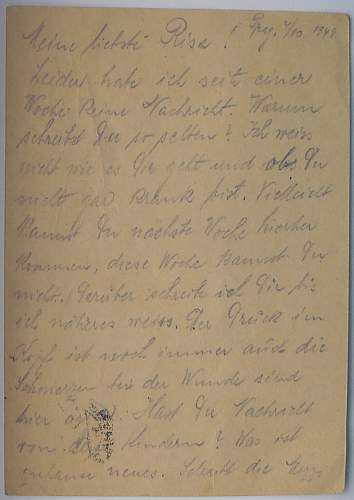 Meine liebste Risa!
Leider habe ich seit einer
Woche keine Nachricht. Warum
schreibst Du so selten? Ich weiss
nicht wie es Dir geht und ob Du
nicht gar krank bist. Vielleicht
kannst Du nächste Woche hierher
kommen, diese Woche kannst Du
nicht. Darüber schreibe ich Dir bis
ich näheres weiss. Der Druck im
Kopf ist noch immer auch die
Schmerzen bei der Wunde sind
hier Hast Du Nachricht
von Kindern? Was ist
zuhause neues. Schreibt die